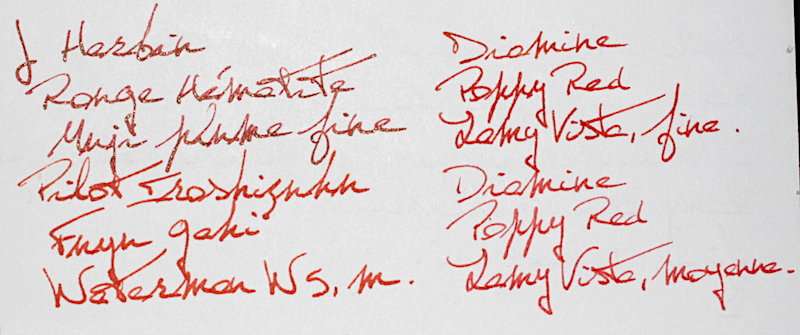 J Herbin
Rouge Hématite
Muji plume fine
Pilot Iroshizuku
Fuyu gaki
Waterman W5, m.
Diamine
Poppy Red
Lamy Vista, fine.
Diamine
Poppy Red
Lamy Vista, moyenne.